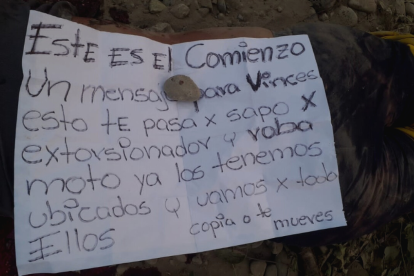 Este es el Comienzo
Un mensaje para Vinces
esto te pasa x sapo x
extorsionador y roba
moto ya los tenemos
ubicados y vamos x todo
Ellos copia o te mueves